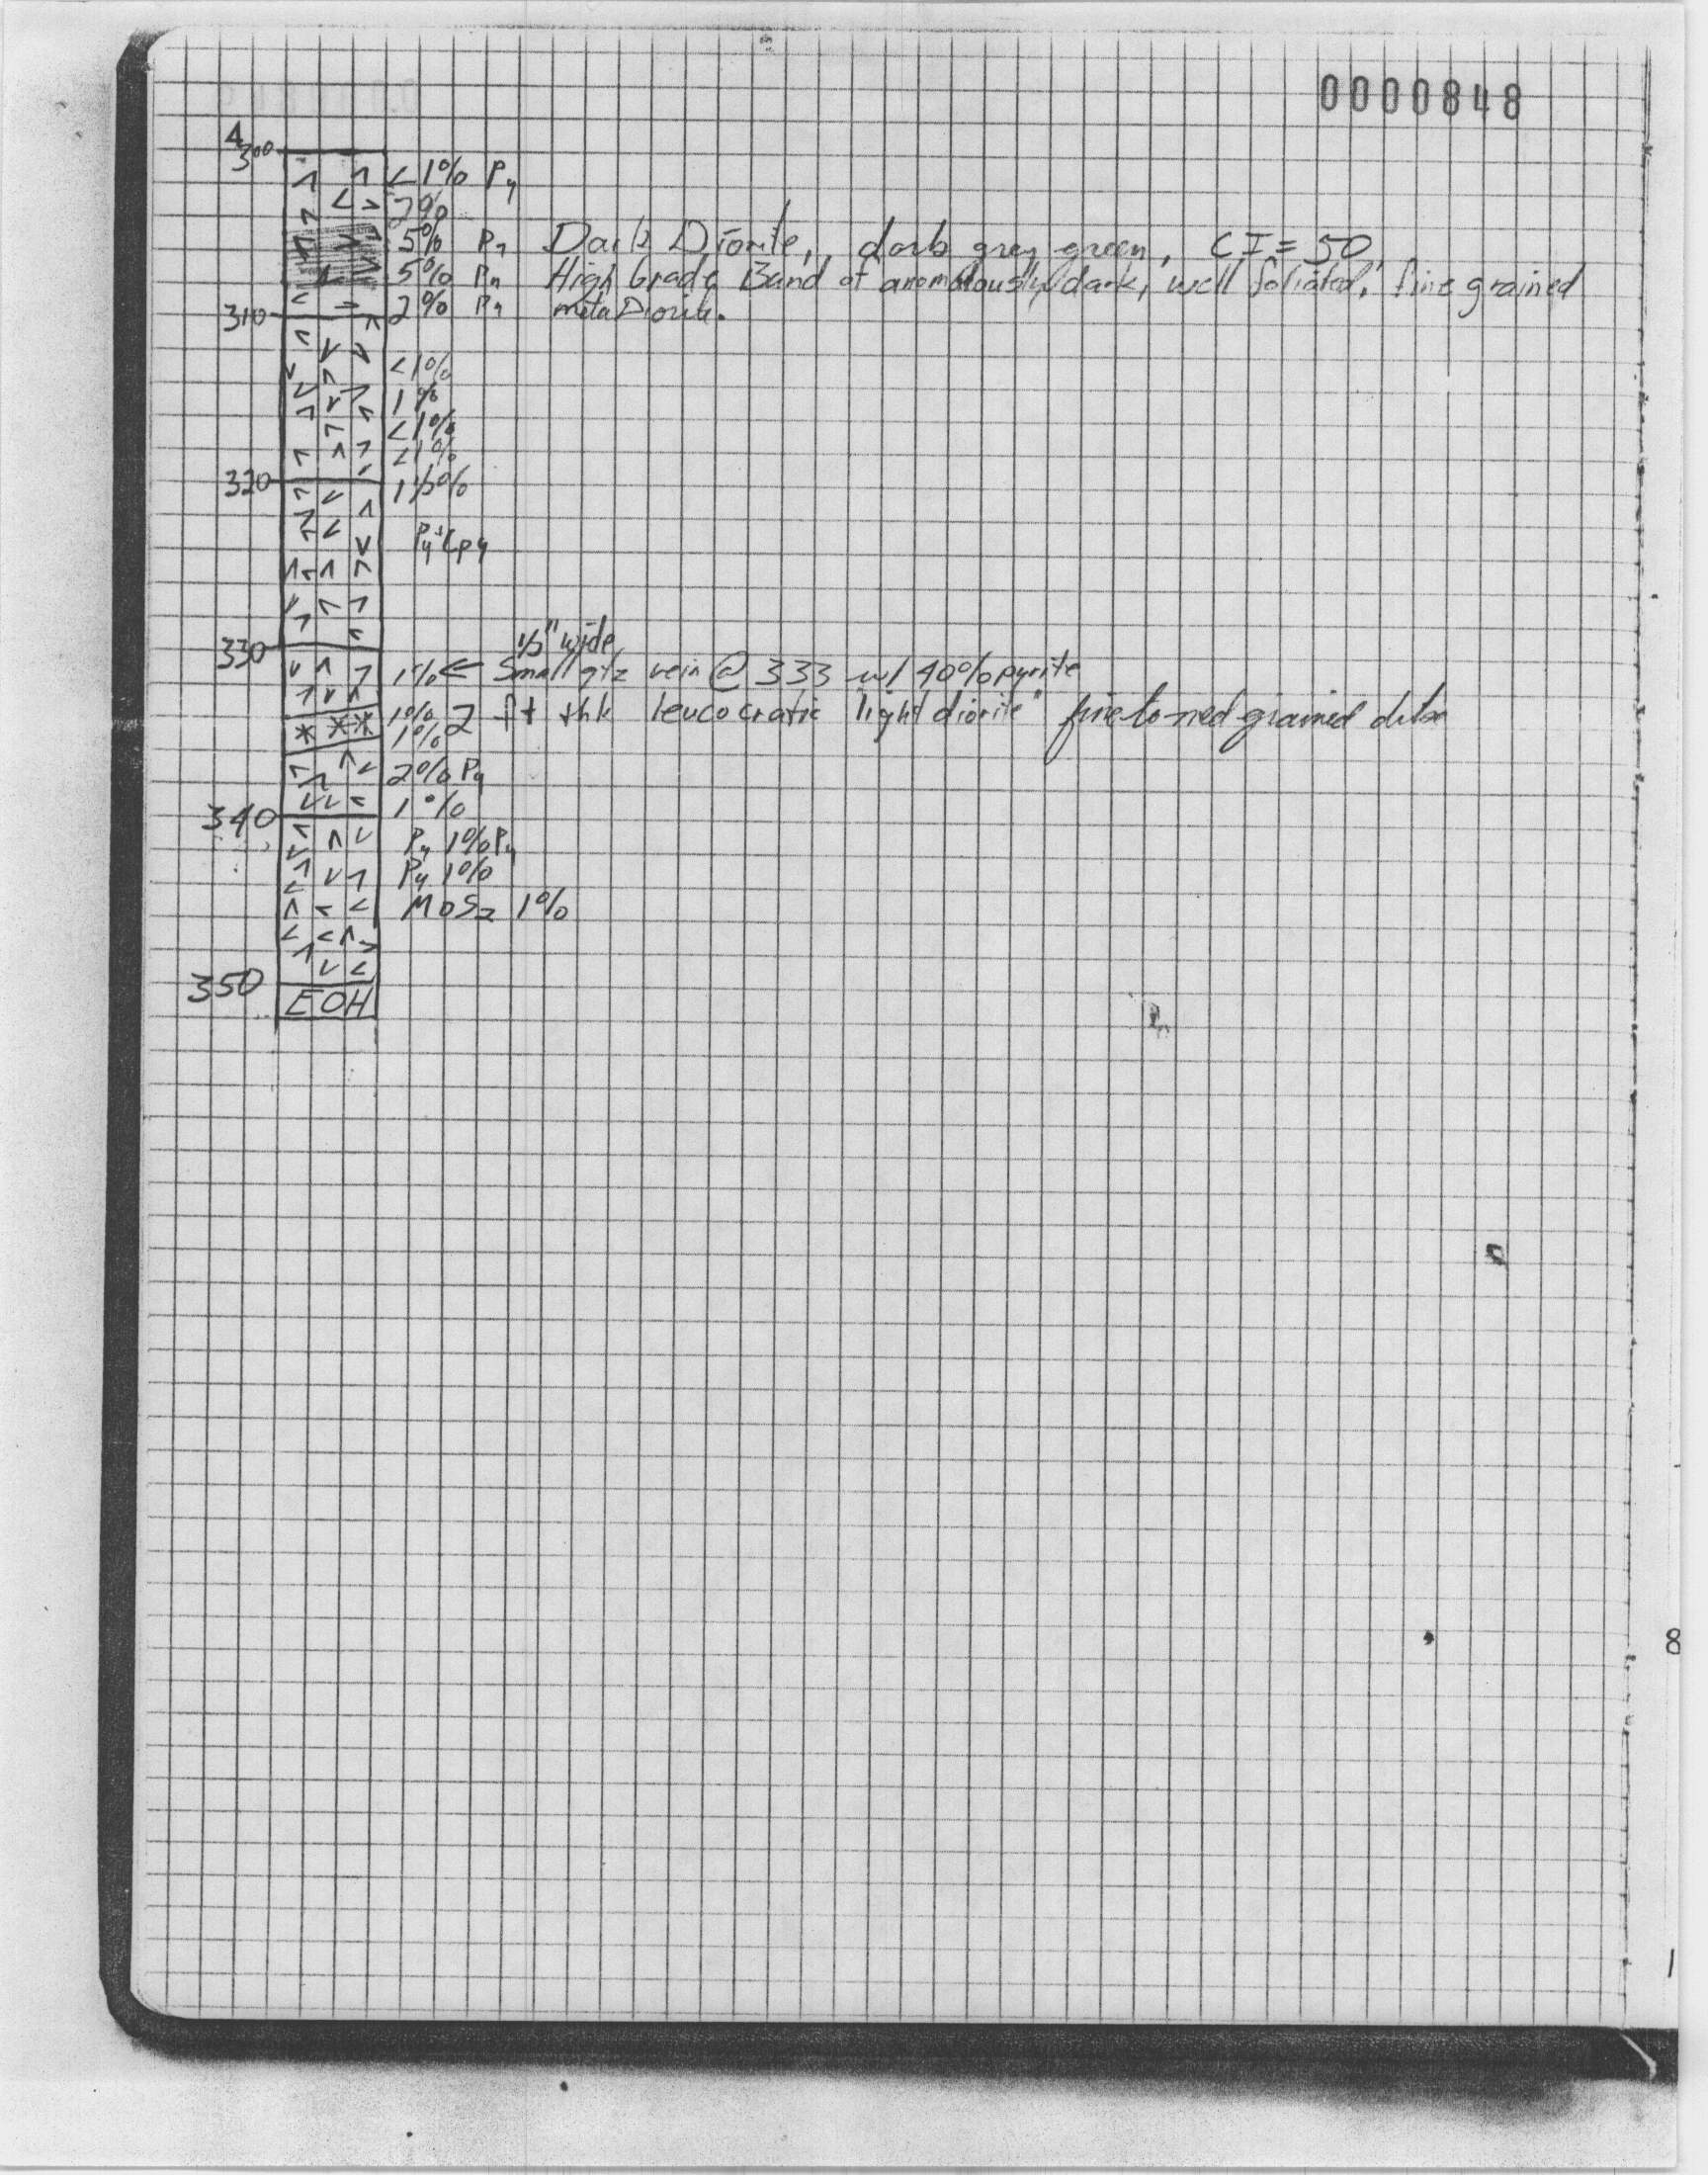 0000848
300
<1% Py
2%
5% Py Dark Diorite, dark grey green, CI = 50
5% Py High Grade Band of anomolously dark, well foliated, fine grained
310 2% Py meta Diorite.
<1%
1%
<1%
<1%
320 1½%
Py+Cpy
330 ½" wide
1% ← Small qtz vein @ 333 w/ 40% pyrite
1% 2 ft thk leucocratic "light diorite" fine to med grained
* ** 1%
2% Py
1%
340
Py 1% Py
Py 1%
MoS2 1%
350
EOH
8